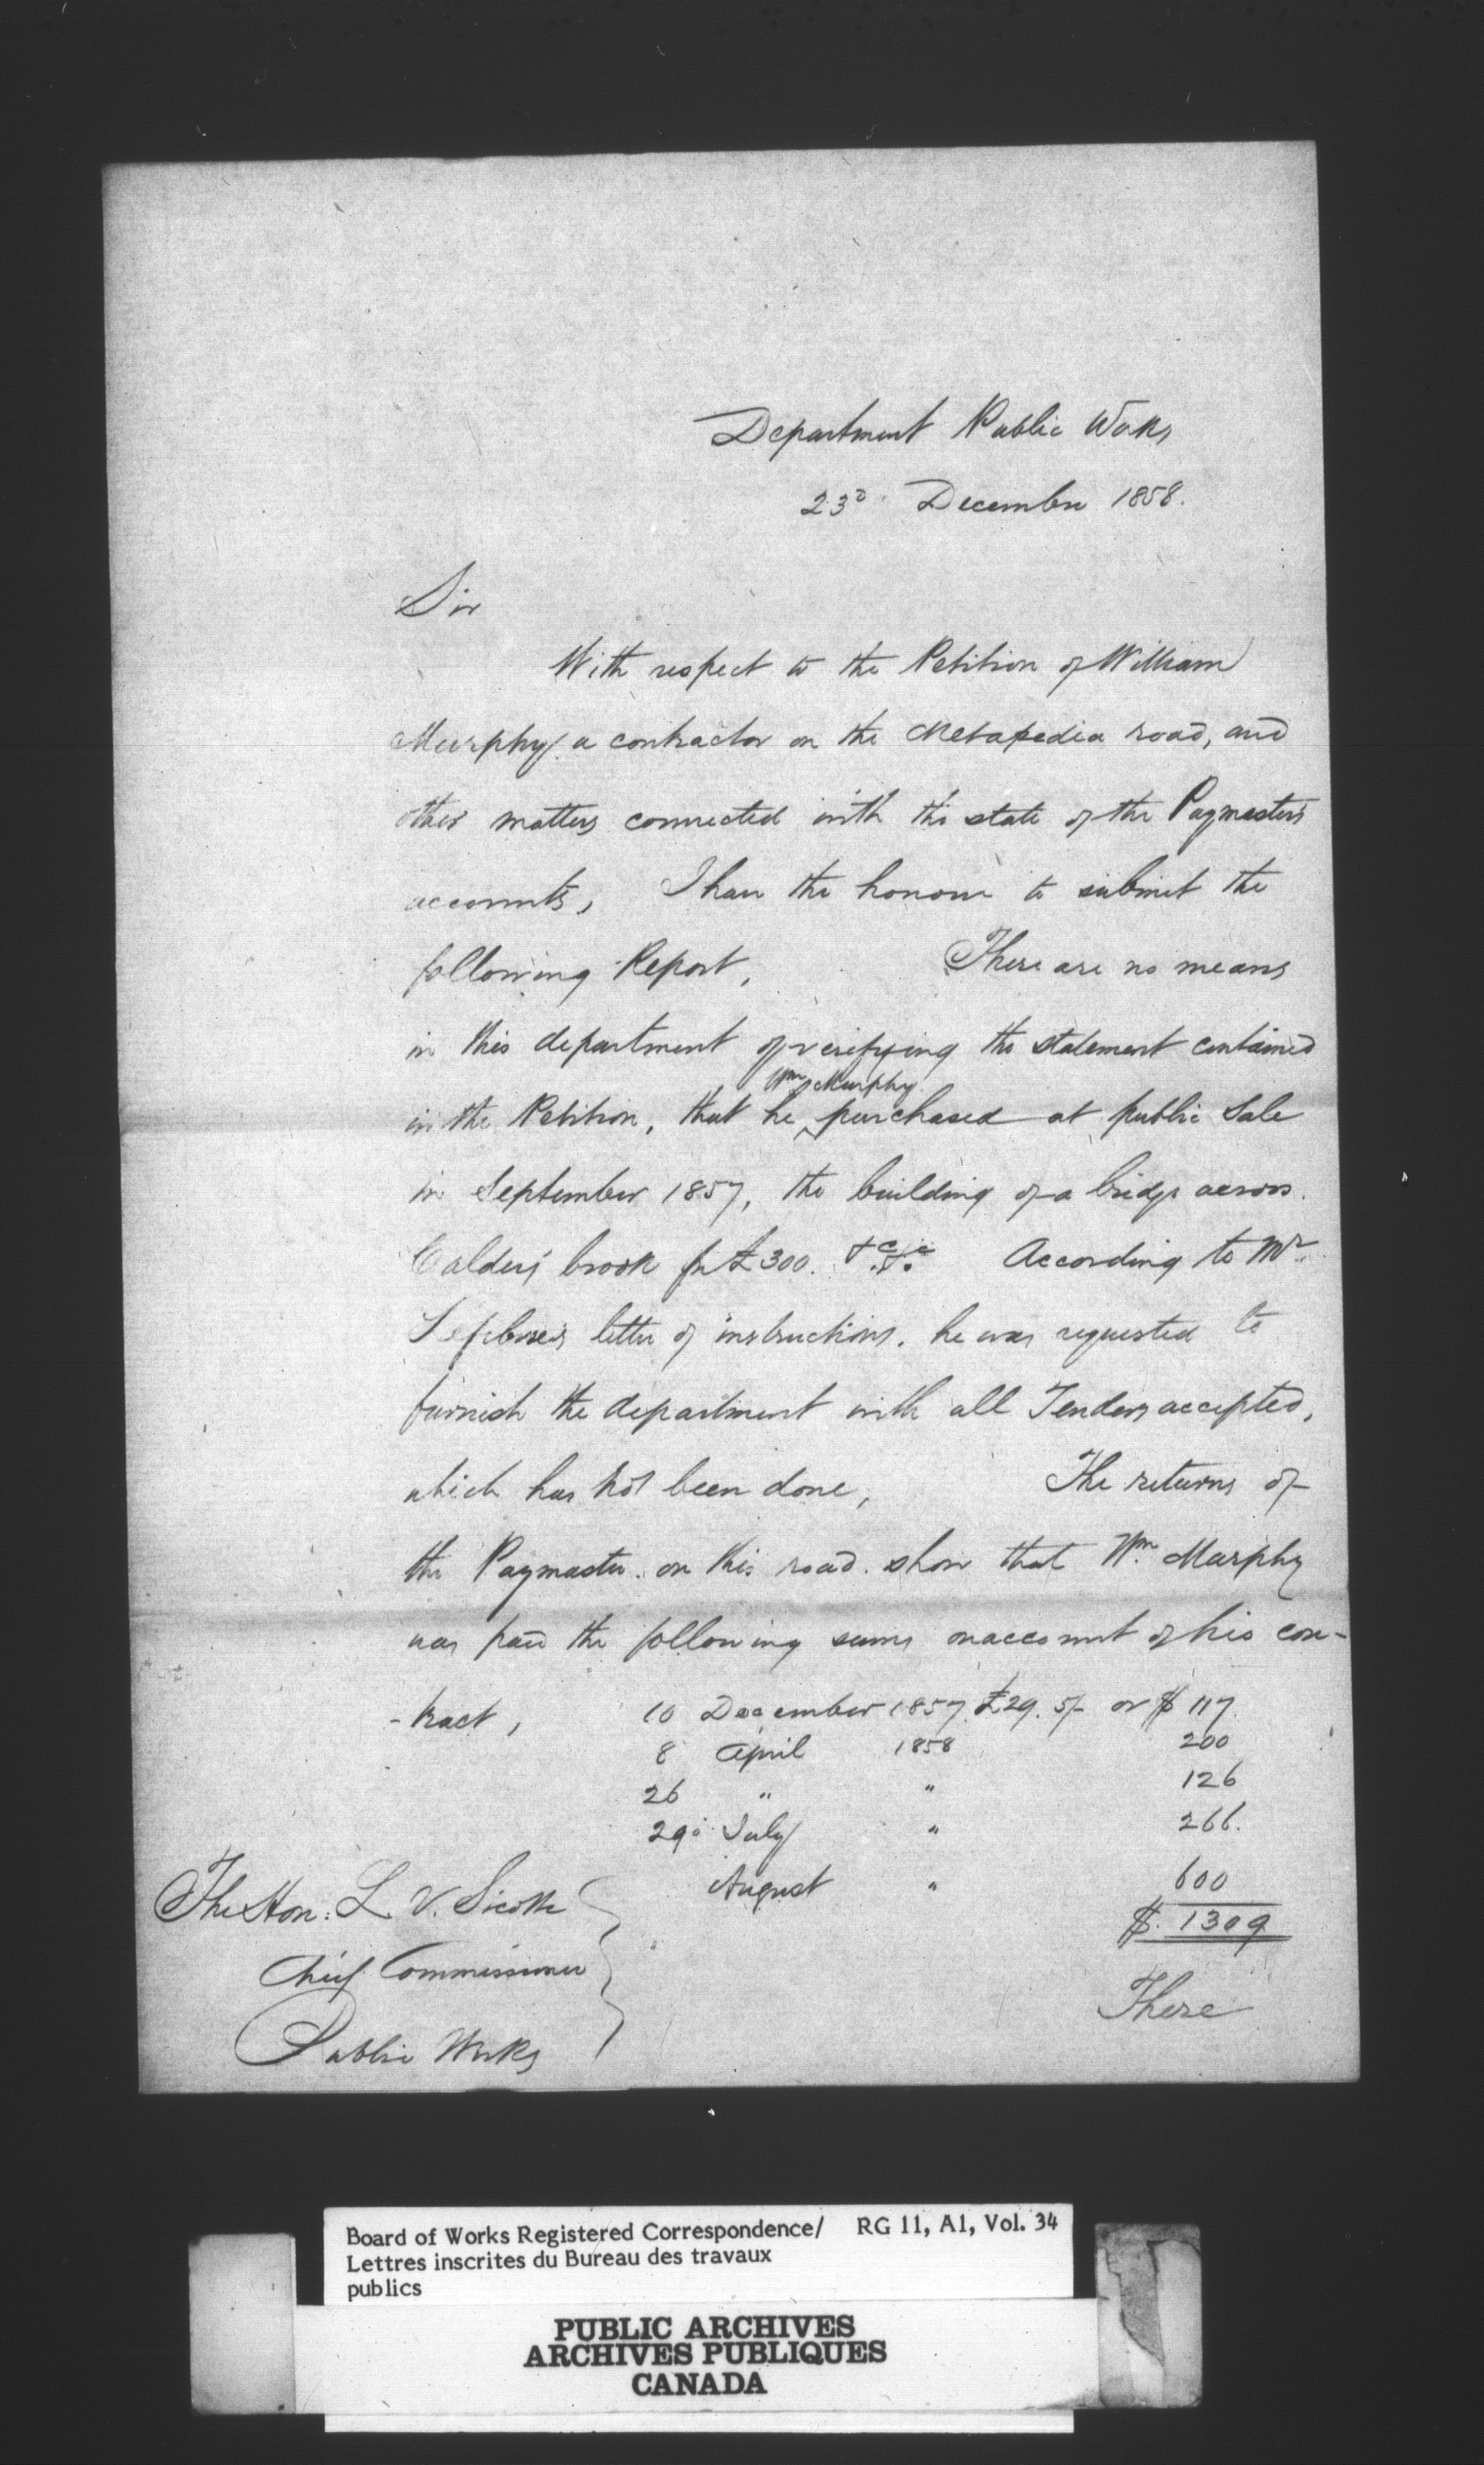 Department Public Works
23d December 1858.
Sir
With respect to the Petition of William
Murphy a contractor on the Metapedia road, and
other matters connected with the state of the Paymasters
accounts, I have the honour to submit the
following Report, There are no means
in this department of verifying the statement contained
Wm Murphy
in the Petition, that he purchased at public Sale
in September 1857, the building of a bridge across
Calders brook for £300. &c &c According to Mr
letter of instructions, he was requested to
furnish the department with all Tenders accepted,
which has not been done, The returns of
the Paymaster on this road show that Wm Murphy
was paid the following sums on account of his con-
-tract, 10 December 1857 £29. 5/- or $ 117.
8 April 1858 200
26 " " 126
29 July " 266.
August " 600
$. 1309
The Hon: L. V. Sicotte
Chief Commissioner
Public Works
There
Board of Works Registered Correspondence/ RG 11, A1, Vol. 34
Lettres inscrites du Bureau des travaux
publics
PUBLIC ARCHIVES
ARCHIVES PUBLIQUES
CANADA